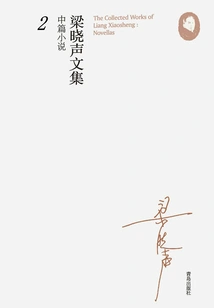 The Collected Works of
Liang Xiaosheng :
Novellas
梁晓声文集
中篇小说
2
梁晓声
青岛出版社